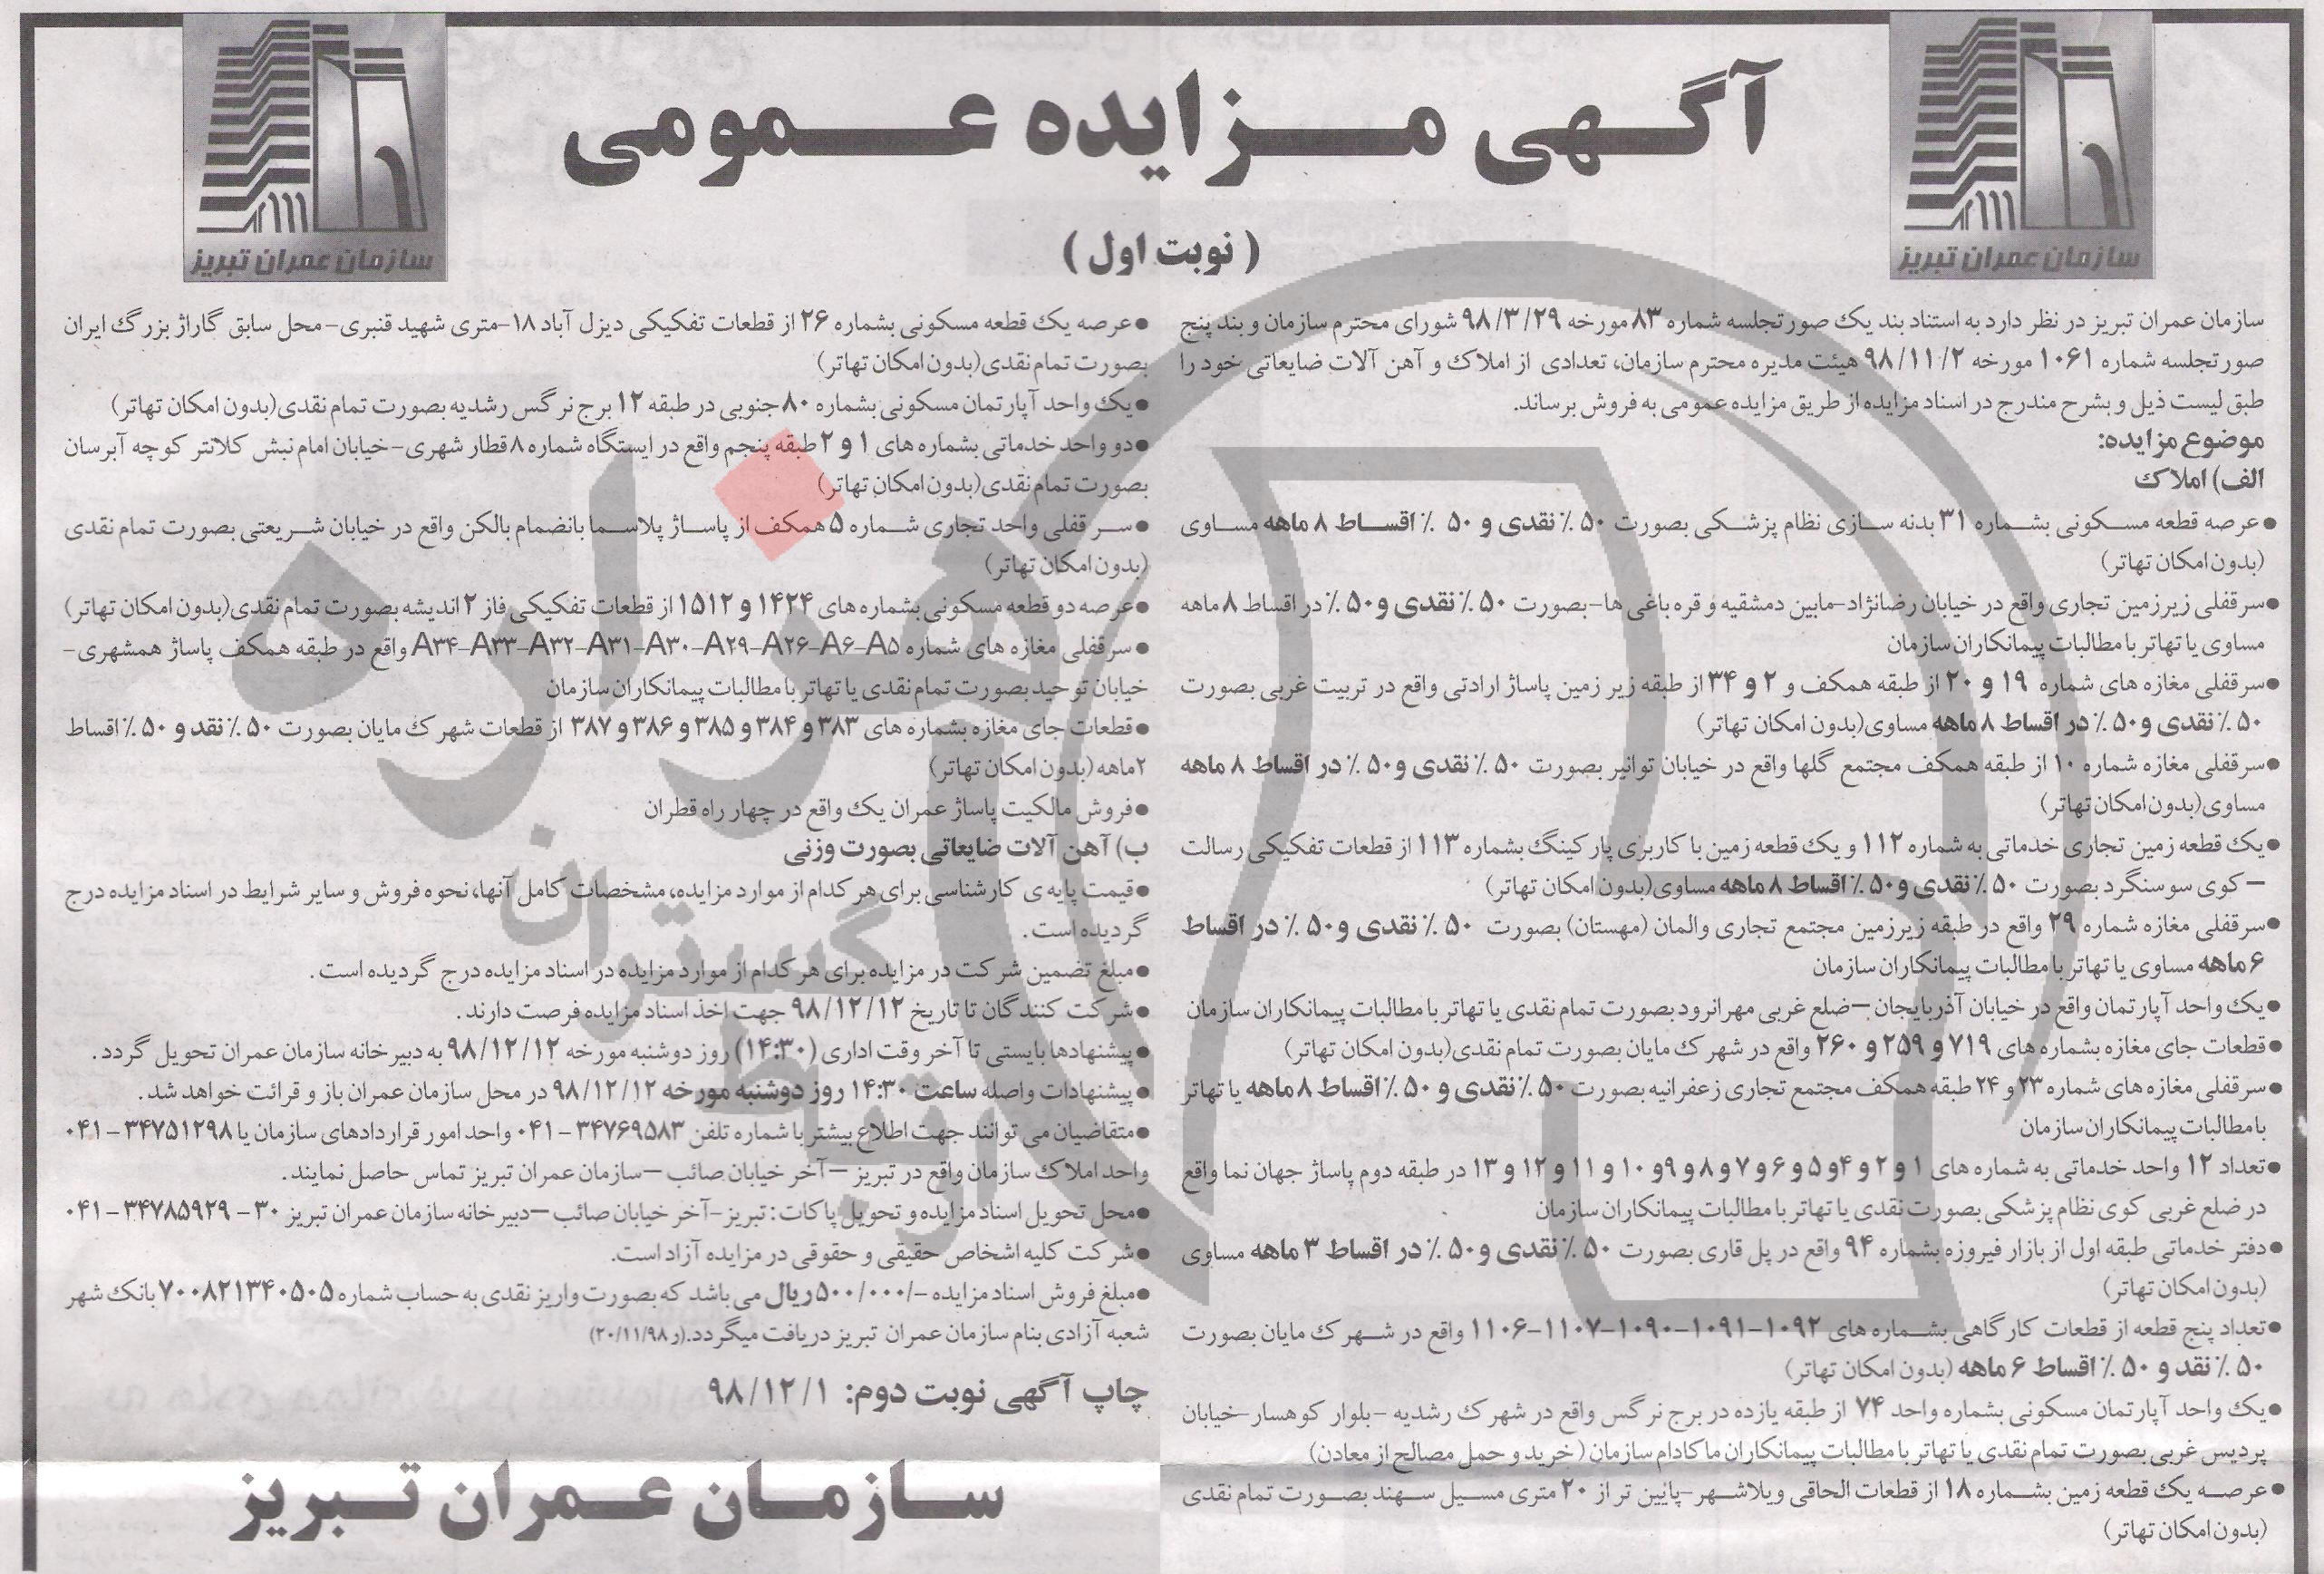 آگهی مزایده عمومی
(نوبت اول)
سازمان عمران تبریز
سازمان عمران تبریز
سازمان عمران تبریز در نظر دارد به استناد بند یک صورتجلسه شماره ۸۳ مورخه ۹۸/۳/۲۹ شورای محترم سازمان و بند پنج
صورتجلسه شماره ۱۰۶۱ مورخه ۹۸/۱۱/۲ هیئت مدیره محترم سازمان، تعدادی از املاک و آهن آلات ضایعاتی خود را
طبق لیست ذیل و بشرح مندرج در اسناد مزایده از طریق مزایده عمومی به فروش برساند.
موضوع مزایده:
الف) املاک
●عرصه قطعه مسکونی بشماره ۳۱ بدنه سازی نظام پزشکی بصورت ۵۰٪ نقدی و ۵۰٪ اقساط ۸ ماهه مساوی
(بدون امکان تهاتر)
●سرقفلی زیرزمین تجاری واقع در خیابان رضانژاد-مابین دمشقیه و قره باغی ها-بصورت ۵۰٪ نقدی و ۵۰٪ در اقساط ۸ ماهه
مساوی یا تهاتر با مطالبات پیمانکاران سازمان
●سرقفلی مغازه های شماره ۱۹ و ۲۰ از طبقه همکف و ۲ و ۳۴ از طبقه زیر زمین پاساژ ارادتی واقع در تربیت غربی بصورت
۵۰٪ نقدی و ۵۰٪ در اقساط ۸ ماهه مساوی(بدون امکان تهاتر)
●سرقفلی مغازه شماره ۱۰ از طبقه همکف مجتمع گلها واقع در خیابان توانیر بصورت ۵۰٪ نقدی و ۵۰٪ در اقساط ۸ ماهه
مساوی(بدون امکان تهاتر)
●یک قطعه زمین تجاری خدماتی به شماره ۱۱۲ و یک قطعه زمین با کاربری پارکینگ بشماره ۱۱۳ از قطعات تفکیکی رسالت
–کوی سوسنگرد بصورت ۵۰٪ نقدی و ۵۰٪ اقساط ۸ ماهه مساوی(بدون امکان تهاتر)
●سرقفلی مغازه شماره ۲۹ واقع در طبقه زیرزمین مجتمع تجاری والمان (مهستان) بصورت ۵۰٪ نقدی و ۵۰٪ در اقساط
۶ ماهه مساوی یا تهاتر با مطالبات پیمانکاران سازمان
●یک واحد آپارتمان واقع در خیابان آذربایجان –ضلع غربی مهرانرود بصورت تمام نقدی یا تهاتر با مطالبات پیمانکاران سازمان
●قطعات جای مغازه بشماره های ۷۱۹ و ۲۵۹ و ۲۶۰ واقع در شهرک مایان بصورت تمام نقدی(بدون امکان تهاتر)
●سرقفلی مغازه های شماره ۲۳ و ۲۴ طبقه همکف مجتمع تجاری زعفرانیه بصورت ۵۰٪ نقدی و ۵۰٪ اقساط ۸ ماهه یا تهاتر
با مطالبات پیمانکاران سازمان
●تعداد ۱۲ واحد خدماتی به شماره های ۱ و ۲ و ۴ و ۵ و ۶ و ۷ و ۸ و ۹ و ۱۰ و ۱۱ و ۱۲ و ۱۳ در طبقه دوم پاساژ جهان نما واقع
در ضلع غربی کوی نظام پزشکی بصورت نقدی یا تهاتر با مطالبات پیمانکاران سازمان
●دفتر خدماتی طبقه اول از بازار فیروزه بشماره ۹۴ واقع در پل قاری بصورت ۵۰٪ نقدی و ۵۰٪ در اقساط ۳ ماهه مساوی
(بدون امکان تهاتر)
●تعداد پنج قطعه از قطعات کارگاهی بشماره های ۱۰۹۲-۱۰۹۱-۱۰۹۰-۱۱۰۷-۱۱۰۶ واقع در شهرک مایان بصورت
۵۰٪ نقد و ۵۰٪ اقساط ۶ ماهه (بدون امکان تهاتر)
●یک واحد آپارتمان مسکونی بشماره واحد ۷۴ از طبقه یازده در برج نرگس واقع در شهرک رشدیه -بلوار کوهسار-خیابان
پردیس غربی بصورت تمام نقدی یا تهاتر با مطالبات پیمانکاران ماکادام سازمان (خرید و حمل مصالح از معادن)
●عرصه یک قطعه زمین بشماره ۱۸ از قطعات الحاقی ویلاشهر-پایین تر از ۲۰ متری مسیل سهند بصورت تمام نقدی
(بدون امکان تهاتر)
●عرصه یک قطعه مسکونی بشماره ۲۶ از قطعات تفکیکی دیزل آباد ۱۸-متری شهید قنبری-محل سابق گاراژ بزرگ ایران
بصورت تمام نقدی(بدون امکان تهاتر)
●یک واحد آپارتمان مسکونی بشماره ۸۰ جنوبی در طبقه ۱۲ برج نرگس رشدیه بصورت تمام نقدی(بدون امکان تهاتر)
●دو واحد خدماتی بشماره های ۱ و ۲ طبقه پنجم واقع در ایستگاه شماره ۸ قطار شهری-خیابان امام نبش کلانتر کوچه آبرسان
بصورت تمام نقدی(بدون امکان تهاتر)
●سرقفلی واحد تجاری شماره ۵ همکف از پاساژ پلاسما بانضمام بالکن واقع در خیابان شریعتی بصورت تمام نقدی
(بدون امکان تهاتر)
●عرصه دو قطعه مسکونی بشماره های ۱۴۲۴ و ۱۵۱۲ از قطعات تفکیکی فاز ۲ اندیشه بصورت تمام نقدی(بدون امکان تهاتر)
●سرقفلی مغازه های شماره A۳۴-A۳۳-A۳۲-A۳۱-A۳۰-A۲۹-A۲۶-A۶-A۵ واقع در طبقه همکف پاساژ همشهری-
خیابان توحید بصورت تمام نقدی یا تهاتر با مطالبات پیمانکاران سازمان
●قطعات جای مغازه بشماره های ۳۸۳ و ۳۸۴ و ۳۸۵ و ۳۸۶ و ۳۸۷ از قطعات شهرک مایان بصورت ۵۰٪ نقد و ۵۰٪ اقساط
۲ماهه (بدون امکان تهاتر)
●فروش مالکیت پاساژ عمران یک واقع در چهار راه قطران
ب) آهن آلات ضایعاتی بصورت وزنی
●قیمت پایه ی کارشناسی برای هر کدام از موارد مزایده، مشخصات کامل آنها، نحوه فروش و سایر شرایط در اسناد مزایده درج
گردیده است.
●مبلغ تضمین شرکت در مزایده برای هر کدام از موارد مزایده در اسناد مزایده درج گردیده است.
●شرکت کنندگان تا تاریخ ۹۸/۱۲/۱۲ جهت اخذ اسناد مزایده فرصت دارند.
●پیشنهادها بایستی تا آخر وقت اداری (۱۴:۳۰) روز دوشنبه مورخه ۹۸/۱۲/۱۲ به دبیرخانه سازمان عمران تحویل گردد.
●پیشنهادات واصله ساعت ۱۴:۳۰ روز دوشنبه مورخه ۹۸/۱۲/۱۲ در محل سازمان عمران باز و قرائت خواهد شد.
●متقاضیان می توانند جهت اطلاع بیشتر با شماره تلفن ۳۴۷۶۹۵۸۳-۰۴۱ واحد امور قراردادهای سازمان یا ۳۴۷۵۱۲۹۸-۰۴۱
واحد املاک سازمان واقع در تبریز –آخر خیابان صائب –سازمان عمران تبریز تماس حاصل نمایند.
●محل تحویل اسناد مزایده و تحویل پاکات: تبریز-آخر خیابان صائب –دبیرخانه سازمان عمران تبریز ۳۰-۳۴۷۸۵۹۲۹-۰۴۱
●شرکت کلیه اشخاص حقیقی و حقوقی در مزایده آزاد است.
●مبلغ فروش اسناد مزایده -/۵۰۰/۰۰۰ ریال می باشد که بصورت واریز نقدی به حساب شماره ۷۰۰۸۲۱۳۴۰۵۰۵ بانک شهر
شعبه آزادی بنام سازمان عمران تبریز دریافت میگردد.(ر۲۰/۱۱/۹۸)
چاپ آگهی نوبت دوم: ۹۸/۱۲/۱
سازمان عمران تبریز